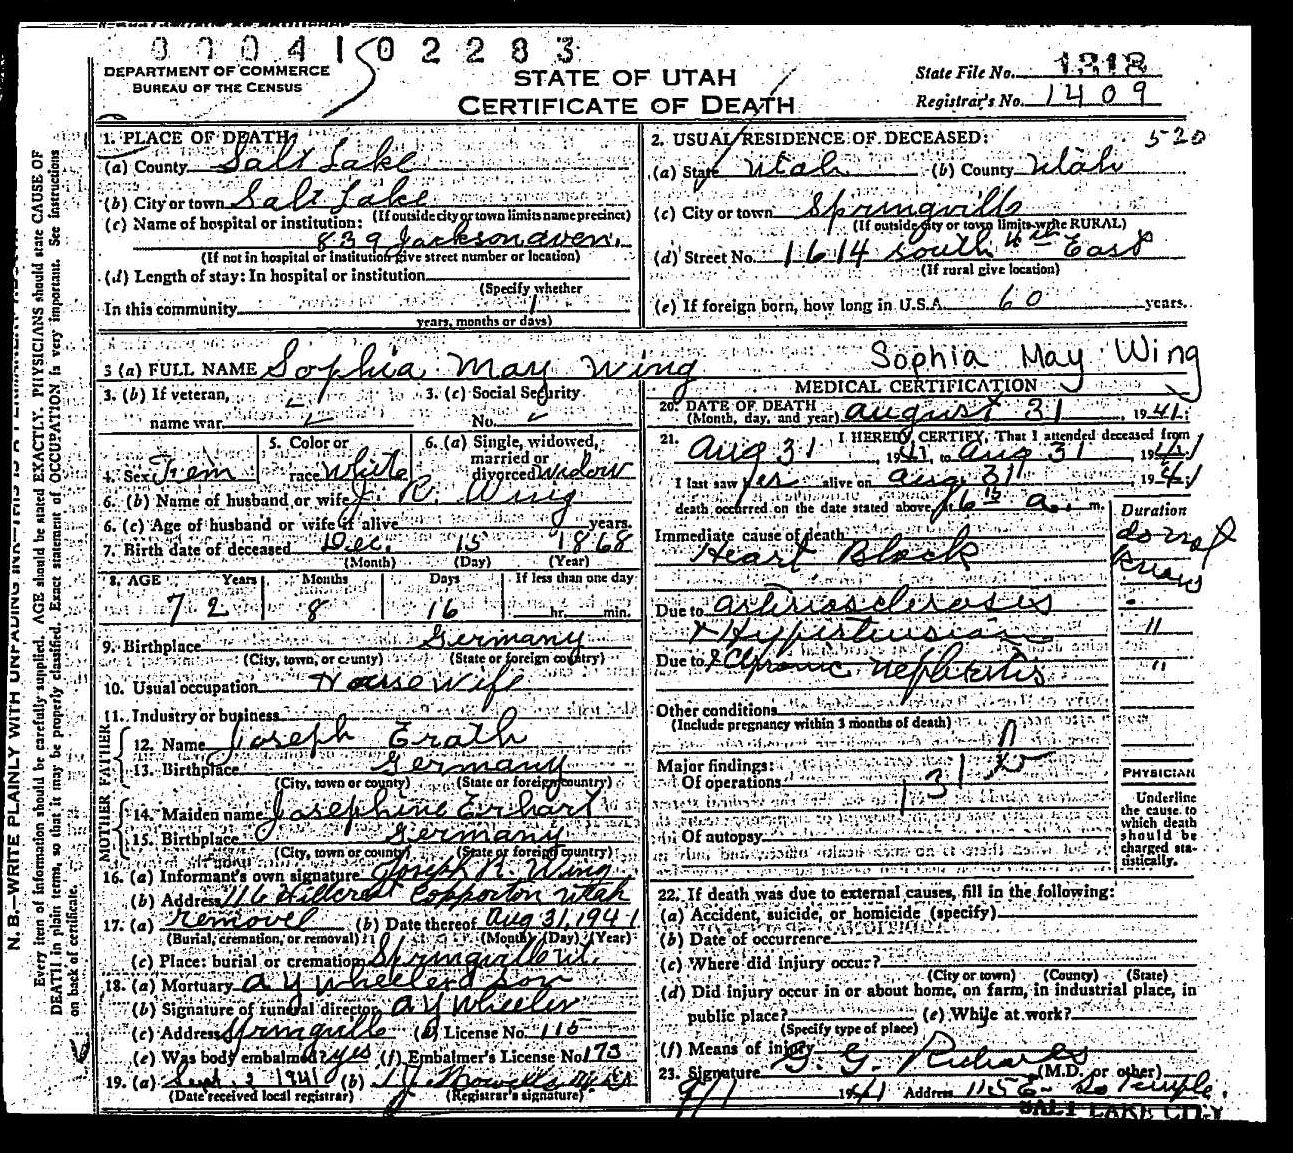 0 0 0 4 1 5 0 2 2 8 3
DEPARTMENT OF COMMERCE
BUREAU OF THE CENSUS
STATE OF UTAH
CERTIFICATE OF DEATH
State File No. 1318
Registrar's No. 1409
1. PLACE OF DEATH
(a) County Salt Lake
(b) City or town Salt Lake
(If outside city or town limits name precinct)
(c) Name of hospital or institution:
839 Jackson aven.
(If not in hospital or institution give street number or location)
(d) Length of stay: In hospital or institution
(Specify whether
In this community 1
years, months or days)
2. USUAL RESIDENCE OF DECEASED: 520
(a) State Utah (b) County Utah
(c) City or town Springville
(If outside city or town limits write RURAL)
(d) Street No. 1614 South 4th East
(If rural give location)
(e) If foreign born, how long in U.S.A. 60 years.
3 (a) FULL NAME Sophia May Wing
Sophia May Wing
3. (b) If veteran,
name war
3. (c) Social Security
No.
4. Sex Fem
5. Color or
race White
6. (a) Single, widowed,
married or
divorced Widow
6. (b) Name of husband or wife J. R. Wing
6. (c) Age of husband or wife if alive years.
7. Birth date of deceased Dec. 15 1868
(Month) (Day) (Year)
8. AGE Years Months Days If less than one day
72 8 16 hr. min.
9. Birthplace Germany
(City, town, or county) (State or foreign country)
10. Usual occupation House Wife
11. Industry or business
FATHER
12. Name Joseph Erath
13. Birthplace Germany
(City, town or county) (State or foreign country)
MOTHER
14. Maiden name Josephine Erhart
15. Birthplace Germany
(City, town or county) (State or foreign country)
16. (a) Informant's own signature Joseph R. Wing
(b) Address 116 Hillcrest Copperton Utah
17. (a) removel (b) Date thereof Aug 31, 1941
(Burial, cremation, or removal) (Month) (Day) (Year)
(c) Place: burial or cremation Springville Ut.
18. (a) Mortuary A Y Wheeler & Son
(b) Signature of funeral director A Y Wheeler
(c) Address Springville (d) License No. 115
(e) Was body embalmed? yes (f) Embalmer's License No. 173
19. (a) Sept. 2 1941 (b)
(Date received local registrar) (Registrar's signature)
MEDICAL CERTIFICATION
20. DATE OF DEATH
(Month, day, and year) August 31, 1941.
21. I HEREBY CERTIFY, That I attended deceased from
Aug 31, 1941, to Aug 31, 1941
I last saw her alive on Aug. 31 1941
death occurred on the date stated above, at 6 15 a. m.
Immediate cause of death
Heart Block
Due to arteriosclerosis
& Hypertension
Due to & Chronic nephritis
Duration
do not
know
"
"
Other conditions
(Include pregnancy within 3 months of death)
Major findings:
Of operations
131
Of autopsy
PHYSICIAN
Underline
the cause to
which death
should be
charged sta-
tistically.
22. If death was due to external causes, fill in the following:
(a) Accident, suicide, or homicide (specify)
(b) Date of occurrence
(c) Where did injury occur?
(City or town) (County) (State)
(d) Did injury occur in or about home, on farm, in industrial place, in
public place? (e) While at work?
(Specify type of place)
(f) Means of injury
23. Signature G. G. Richards (M.D. or other)
9/1 1941 Address 115 E. So Temple.
SALT LAKE CITY
N.B.—WRITE PLAINLY WITH UNFADING INK—THIS IS A PERMANENT RECORD
Every item of information should be carefully supplied. AGE should be stated EXACTLY. PHYSICIANS should state CAUSE OF
DEATH in plain terms, so that it may be properly classified. Exact statement of OCCUPATION is very important. See instructions
on back of certificate.